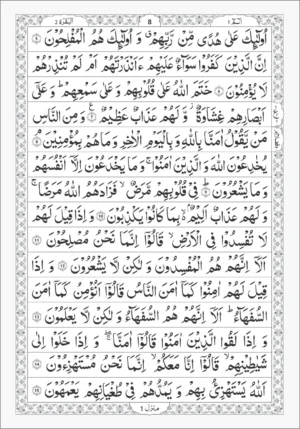 البقرة ٢
8
الٓمّٓ ١
اُولٰٓئِكَ عَلٰى هُدًى مِّنْ رَّبِّهِمْ ۗ وَ اُولٰٓئِكَ هُمُ الْمُفْلِحُوْنَ ۝٥
اِنَّ الَّذِيْنَ كَفَرُوْا سَوَآءٌ عَلَيْهِمْ ءَاَنْذَرْتَهُمْ اَمْ لَمْ تُنْذِرْهُمْ
لَا يُؤْمِنُوْنَ ۝٦ خَتَمَ اللّٰهُ عَلٰى قُلُوْبِهِمْ وَ عَلٰى سَمْعِهِمْ ؕ وَ عَلٰٓى
اَبْصَارِهِمْ غِشَاوَةٌ ؗ وَّ لَهُمْ عَذَابٌ عَظِيْمٌ ۝٧ وَ مِنَ النَّاسِ
مَنْ يَّقُوْلُ اٰمَنَّا بِاللّٰهِ وَ بِالْيَوْمِ الْاٰخِرِ وَ مَا هُمْ بِمُؤْمِنِيْنَ ۝٨
يُخٰدِعُوْنَ اللّٰهَ وَ الَّذِيْنَ اٰمَنُوْا ۚ وَ مَا يَخْدَعُوْنَ اِلَّاۤ اَنْفُسَهُمْ
وَ مَا يَشْعُرُوْنَ ۝٩ فِيْ قُلُوْبِهِمْ مَّرَضٌ ۙ فَزَادَهُمُ اللّٰهُ مَرَضًا ۚ
وَ لَهُمْ عَذَابٌ اَلِيْمٌۢ ۙ۬ بِمَا كَانُوْا يَكْذِبُوْنَ ۝١٠ وَ اِذَا قِيْلَ لَهُمْ
لَا تُفْسِدُوْا فِي الْاَرْضِ ۙ قَالُوْۤا اِنَّمَا نَحْنُ مُصْلِحُوْنَ ۝١١
اَلَاۤ اِنَّهُمْ هُمُ الْمُفْسِدُوْنَ وَ لٰكِنْ لَّا يَشْعُرُوْنَ ۝١٢ وَ اِذَا
قِيْلَ لَهُمْ اٰمِنُوْا كَمَاۤ اٰمَنَ النَّاسُ قَالُوْۤا اَنُؤْمِنُ كَمَاۤ اٰمَنَ
السُّفَهَآءُ ؕ اَلَاۤ اِنَّهُمْ هُمُ السُّفَهَآءُ وَ لٰكِنْ لَّا يَعْلَمُوْنَ ۝١٣
وَ اِذَا لَقُوا الَّذِيْنَ اٰمَنُوْا قَالُوْۤا اٰمَنَّا ۖۚ وَ اِذَا خَلَوْا اِلٰى
شَيٰطِيْنِهِمْ ۙ قَالُوْۤا اِنَّا مَعَكُمْ ۙ اِنَّمَا نَحْنُ مُسْتَهْزِءُوْنَ ۝١٤
اَللّٰهُ يَسْتَهْزِئُ بِهِمْ وَ يَمُدُّهُمْ فِيْ طُغْيَانِهِمْ يَعْمَهُوْنَ ۝١٥
منزل 1